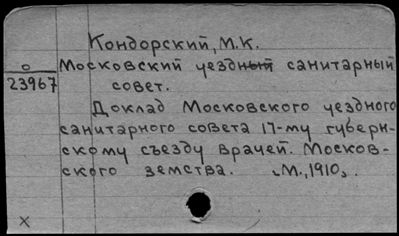 Кондорский, М.К.
О Московский уездный санитарный
23967 совет.
Доклад Московского уездного
санитарного совета 17-му губерн-
скому съезду врачей. Москов-
ского земства. „М., 1910„.
X